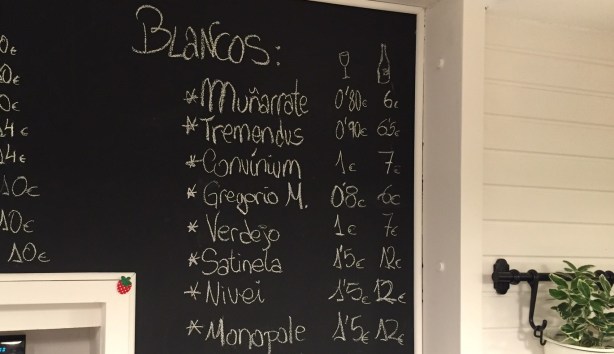 0€
0€
0€
14€
14€
10€
10€
10€
BLANCOS:
*Muñarrate 0'80€ 6€
*Tremendus 0'90€ 6'5€
*Convinium 1€ 7€
*Gregorio M. 0'8€ 6€
*Verdejo 1€ 7€
*Satinela 1'5€ 12€
*Nivei 1'5€ 12€
*Monopole 1'5€ 12€